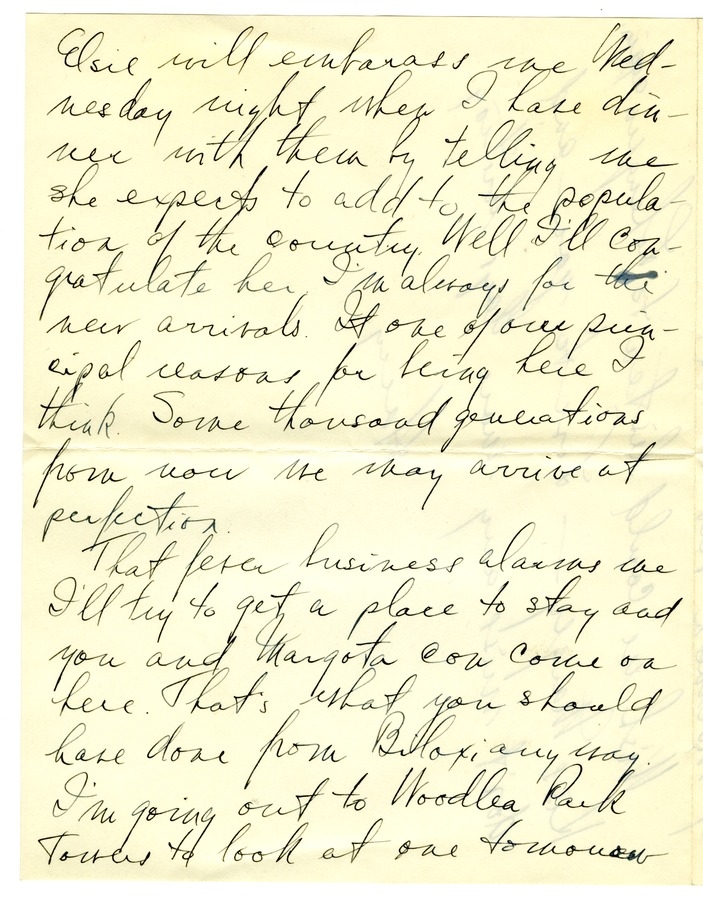 Elsie will embarass me Wed-
nesday night when I have din-
ner with them by telling me
she expects to add to the popula-
tion of the country. Well I'll con-
gratulate her. I'm always for the
new arrivals. It one of our prin-
cipal reasons for being here I
think. Some thousand generations
from now we may arrive at
perfection.
That fever business alarms me
I'll try to get a place to stay and
you and Margota can come on
here. That's what you should
have done from Biloxi any way.
I'm going out to Woodlea Park
Towers to look at one tomorrow